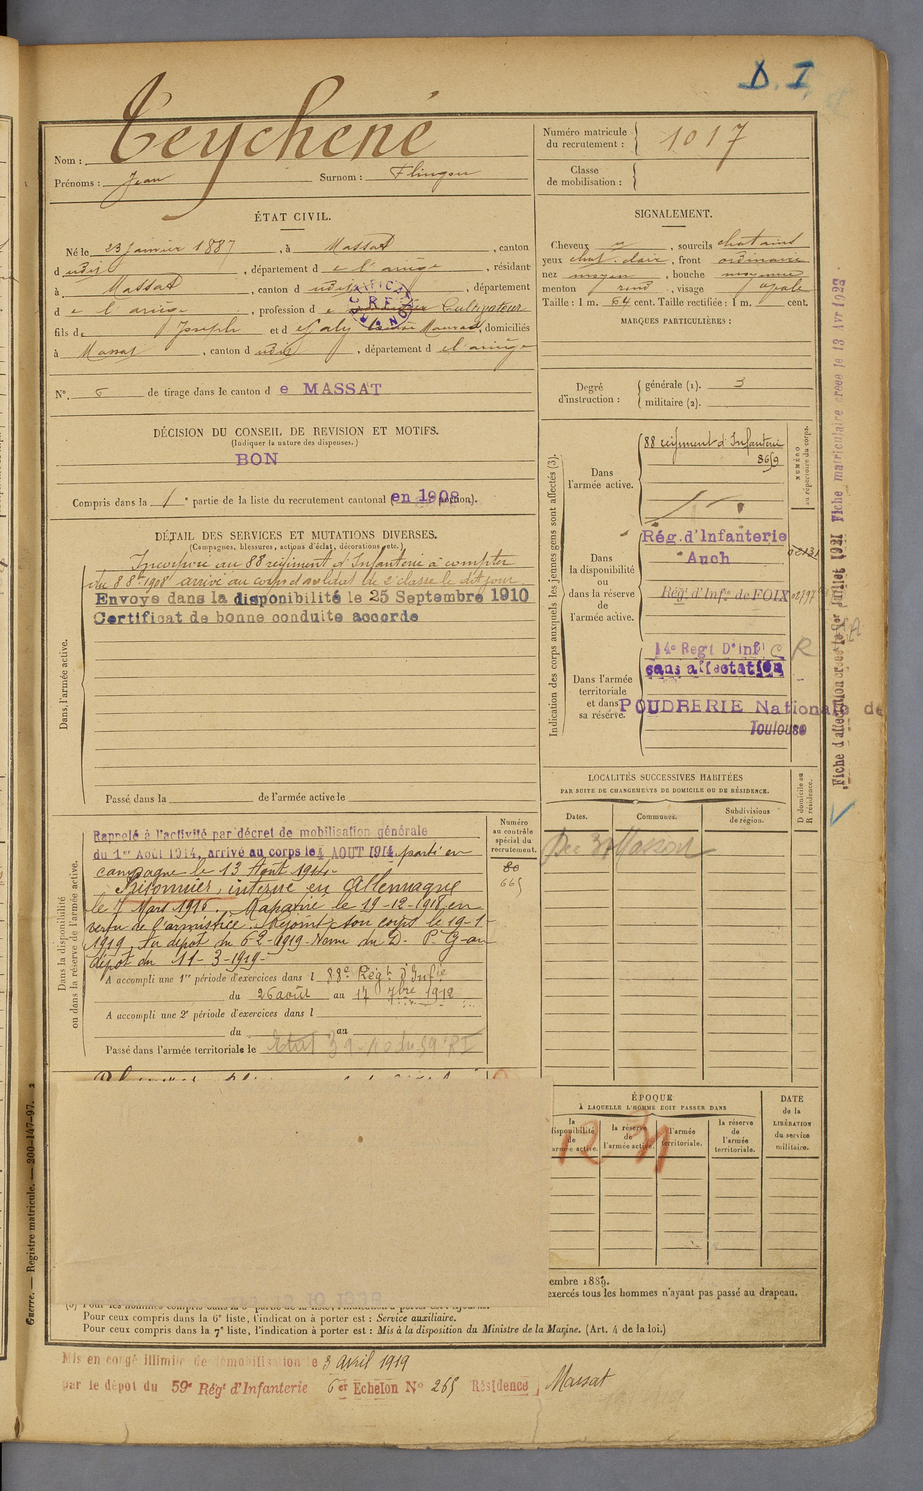 D. I.
Nom : Teychené
Prénoms : Jean Surnom : Flingou
Numéro matricule du recrutement : 1017
Classe de mobilisation :
ÉTAT CIVIL.
Né le 23 janvier 1887, à Massat, canton
d udit, département de l'ariège, résidant
à Massat, canton d udit, département
de l'ariège, profession de Cultivateur
fils de Joseph et de Galy, domiciliés
à Massat, canton d udit, département de l'ariège
N° 6 de tirage dans le canton de MASSAT
DÉCISION DU CONSEIL DE REVISION ET MOTIFS.
(Indiquer la nature des dispenses.)
BON
Compris dans la 1e partie de la liste du recrutement cantonal en 1908
SIGNALEMENT.
Cheveux, sourcils chatains
yeux chat. clair, front ordinaire
nez moyen, bouche moyenne
menton rond, visage ovale
Taille : 1 m. 64 cent. Taille rectifiée : 1 m. cent.
MARQUES PARTICULIÈRES :
Degré d'instruction :
générale (1). 3
militaire (2).
DÉTAIL DES SERVICES ET MUTATIONS DIVERSES.
(Campagnes, blessures, actions d'éclat, décorations, etc.)
Dans l'armée active.
Incorporé au 88 régiment d'Infanterie à compter
du 8 8bre 1908 arrivé au corps et soldat de 2e classe le dit jour.
Envoyé dans la disponibilité le 25 Septembre 1910
Certificat de bonne conduite accorde
Passé dans la de l'armée active le
Indication des corps auxquels les jeunes gens sont affectés (3).
NUMÉRO au répertoire du corps.
Dans l'armée active.
88 régiment d'Infanterie
8659
Dans la disponibilité ou dans la réserve de l'armée active.
Rég. d'Infanterie
Auch
Régt d'Infie de FOIX
Dans l'armée territoriale et dans sa réserve.
14e Regt D'inf
sans affectation
POUDRERIE Nationale de
Toulouse
LOCALITÉS SUCCESSIVES HABITÉES
PAR SUITE DE CHANGEMENTS DE DOMICILE OU DE RÉSIDENCE.
Dates.
Communes.
Subdivisions de région.
D. domicile ou R. résidence.
Massat
Numéro au contrôle spécial du recrutement.
80
665
Dans la disponibilité ou dans la réserve de l'armée active.
Rappelé à l'activité par décret de mobilisation générale
du 1er Août 1914, arrivé au corps le 4 AOUT 1914 parti en
campagne le 13 Août 1914.
Prisonnier, interné en Allemagne
le 7 Mars 1915. Rapatrié le 19-12-1918 en
vertu de l'armistice. Rejoint son corps le 19-1-
1919. Au dépôt du 6-2-1919. Venu du D. P. G. au
dépôt du 11-3-1919.
A accompli une 1re période d'exercices dans l 88e Régt d'Infie
du 26 août au 17 7bre 1912
A accompli une 2e période d'exercices dans l
du au
Passé dans l'armée territoriale le
ÉPOQUE
À LAQUELLE L'HOMME DOIT PASSER DANS
la disponibilité de l'armée active.
la réserve de l'armée active.
l'armée territoriale.
la réserve de l'armée territoriale.
DATE de la LIBÉRATION du service militaire.
12 31
embre 1889.
exercés tous les hommes n'ayant pas passé au drapeau.
Pour ceux compris dans la 6e liste, l'indication à porter est : Service auxiliaire.
Pour ceux compris dans la 7e liste, l'indication à porter est : Mis à la disposition du Ministre de la Marine. (Art. 4 de la loi.)
Mis en congé illimité de démobilisation le 3 avril 1919
par le dépôt du 59e Régt d'Infanterie 6er Echelon N° 265 Résidence Massat
Guerre. — Registre matricule. — 200-147-97.
Fiche d'affectation créée le 1er Juillet 1921 Fiche matriculaire créée le 13 Avr 1923